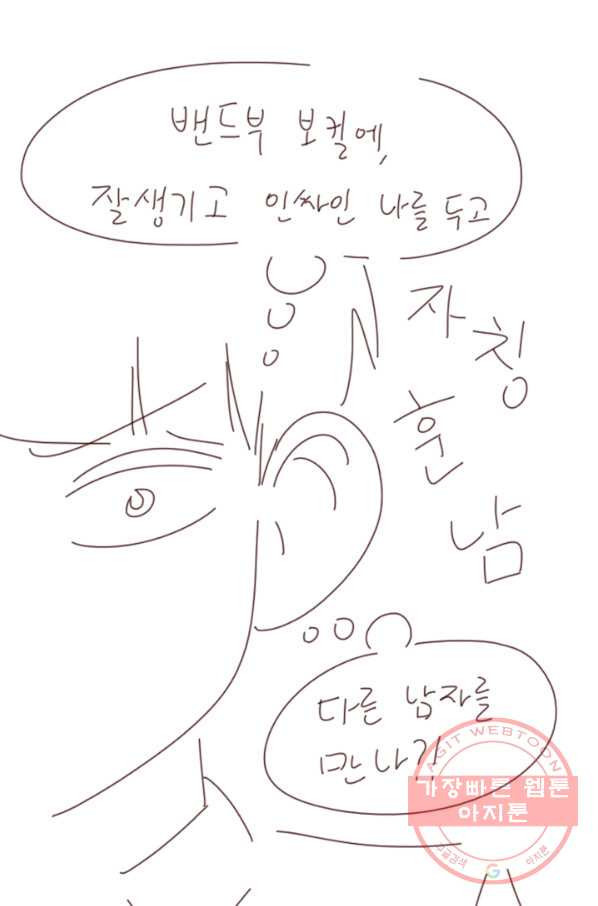 밴드부 보컬에,
잘생기고 인싸인 나를 두고
자칭
훈남
다른 남자를
만나?
AGIT WEBTOON
가장빠른 웹툰
아지툰
구글검색
아지툰
G